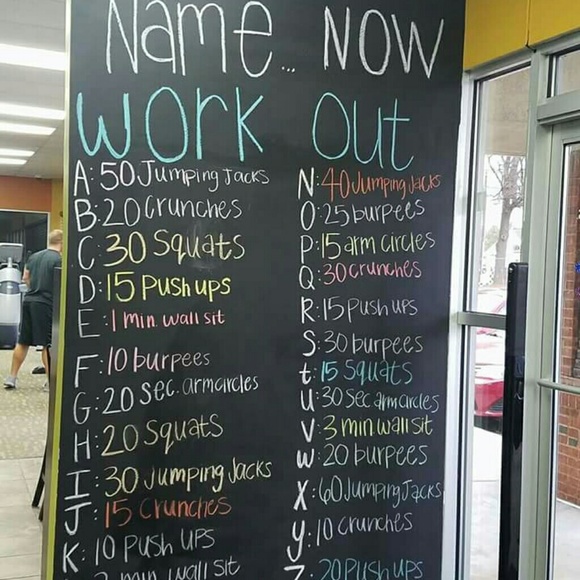 Name... NOW
Work Out
A: 50 Jumping Jacks
B: 20 crunches
C: 30 Squats
D: 15 Push ups
E: 1 min. wall sit
F: 10 burpees
G: 20 sec. arm circles
H: 20 Squats
I: 30 Jumping Jacks
J: 15 Crunches
K: 10 Push ups
min wall sit
N: 40 Jumping Jacks
O: 25 burpees
P: 15 arm circles
Q: 30 crunches
R: 15 push ups
S: 30 burpees
t: 15 Squats
U: 30 Sec arm circles
V: 3 min wall sit
W: 20 burpees
X: 60 Jumping Jacks
y: 10 crunches
Z: 20 Push ups